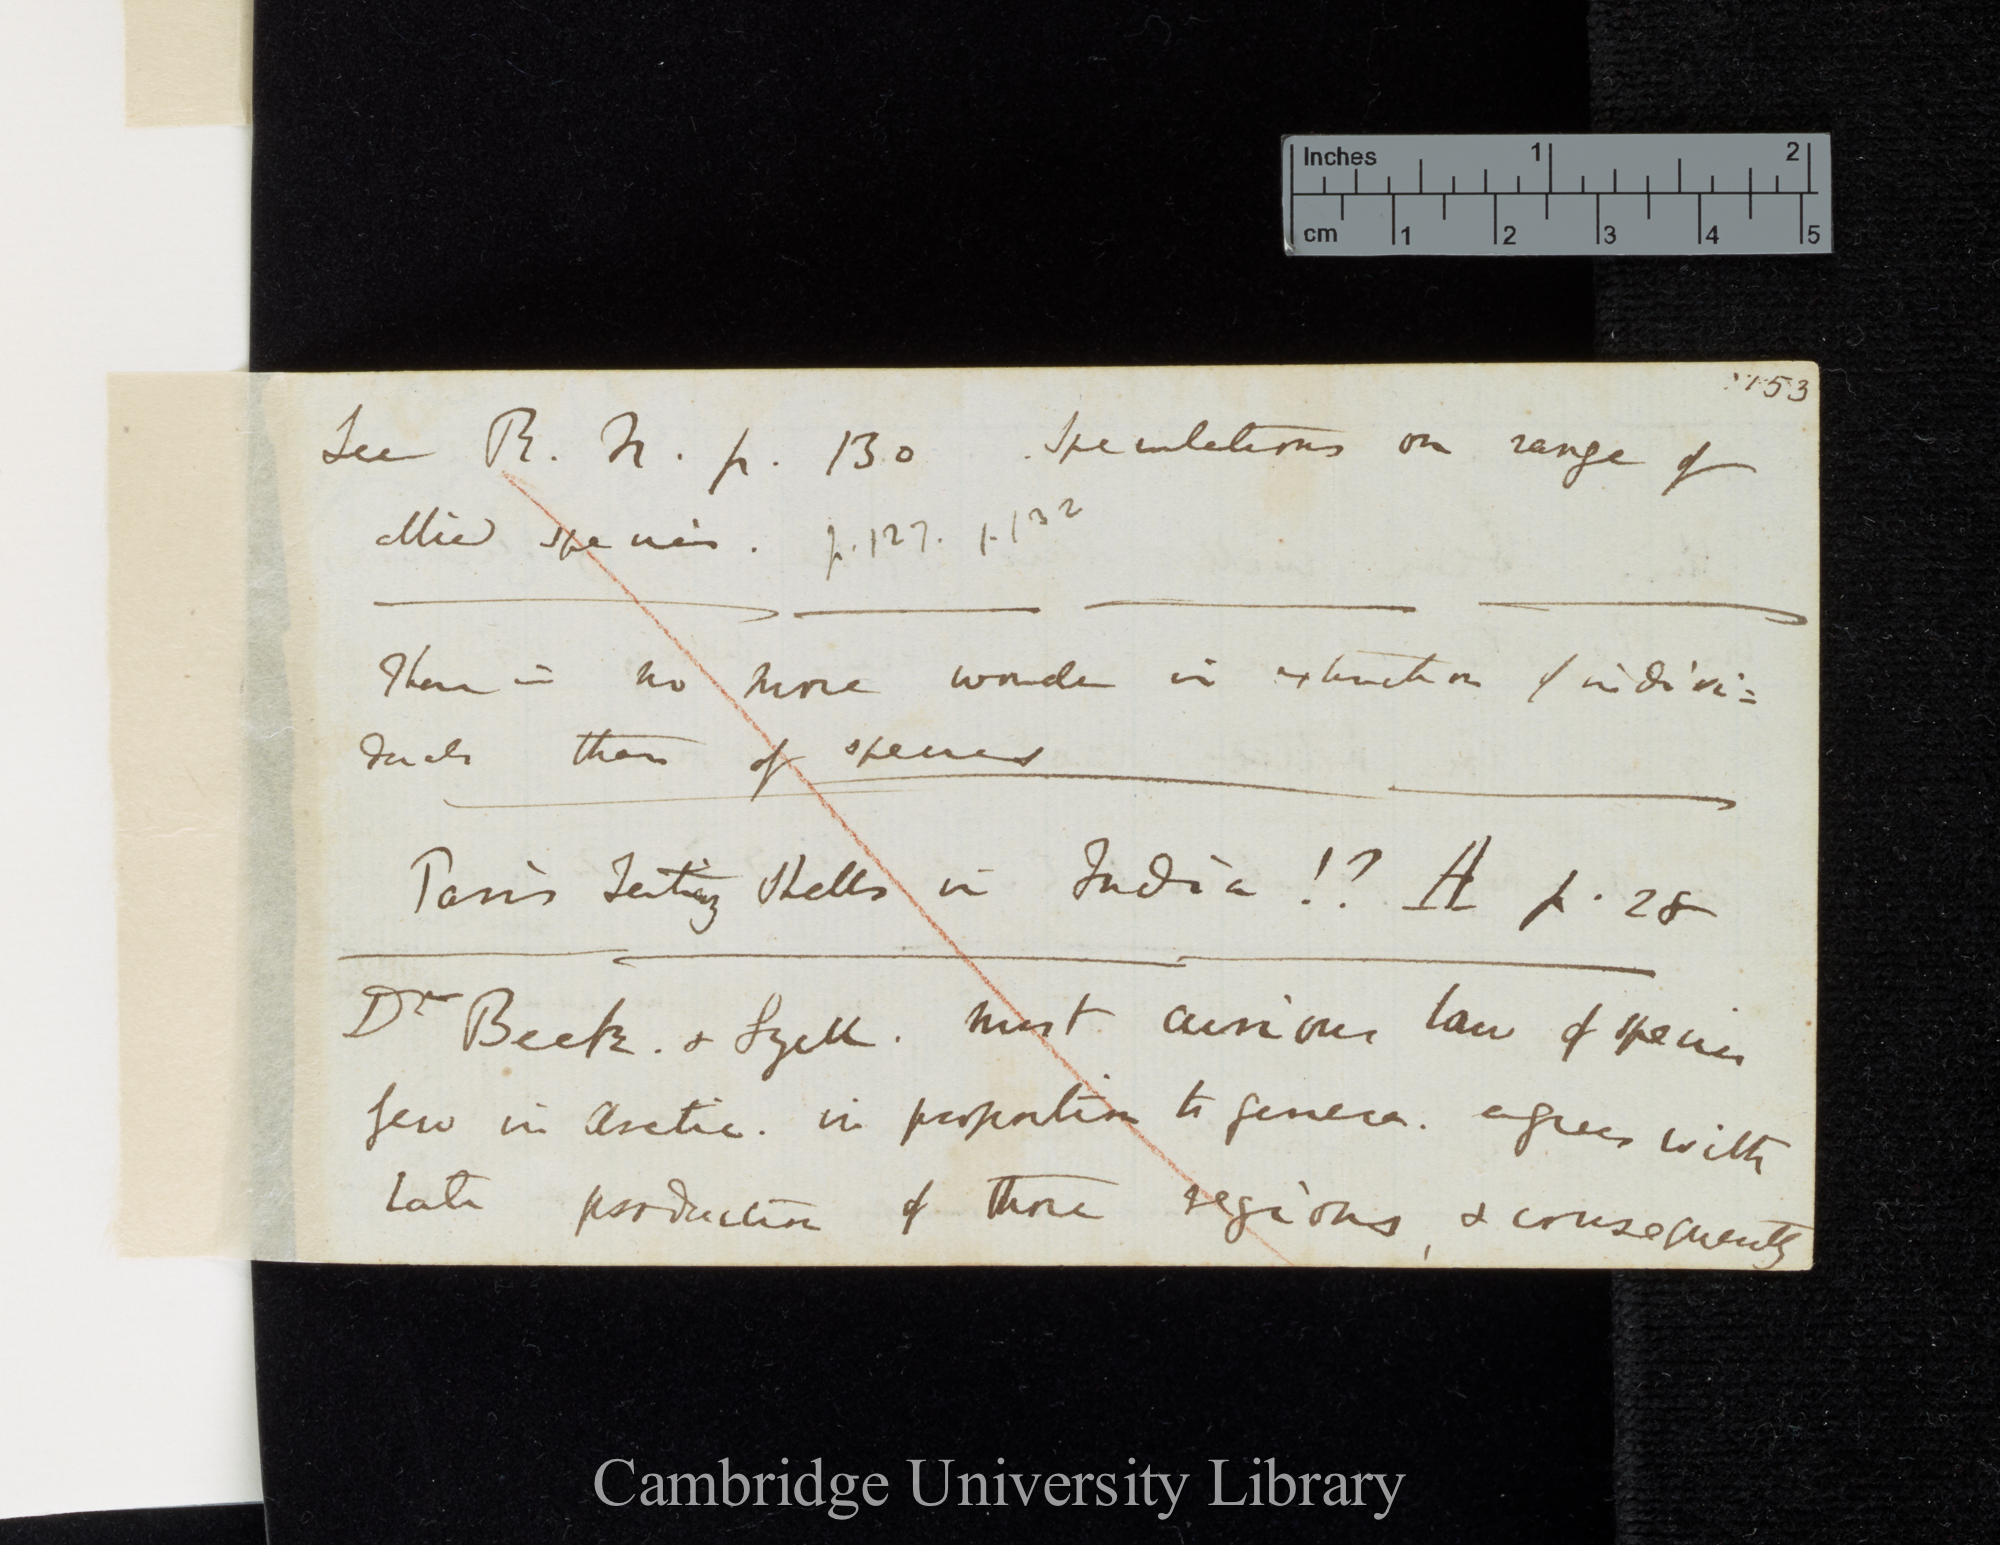 Inches 1 2
cm 1 2 3 4 5
153
See R. N. p. 130 Speculations on range of
allied species. p. 127. p. 132
There is no more wonder in extinction of indivi=
duals than of species
Paris Tertiary Shells in India !? A p. 28
Dr Beck. & Lyell. most curious law of species
few in Arctic. in proportion to genera. agrees with
late production of those regions, & consequently
Cambridge University Library